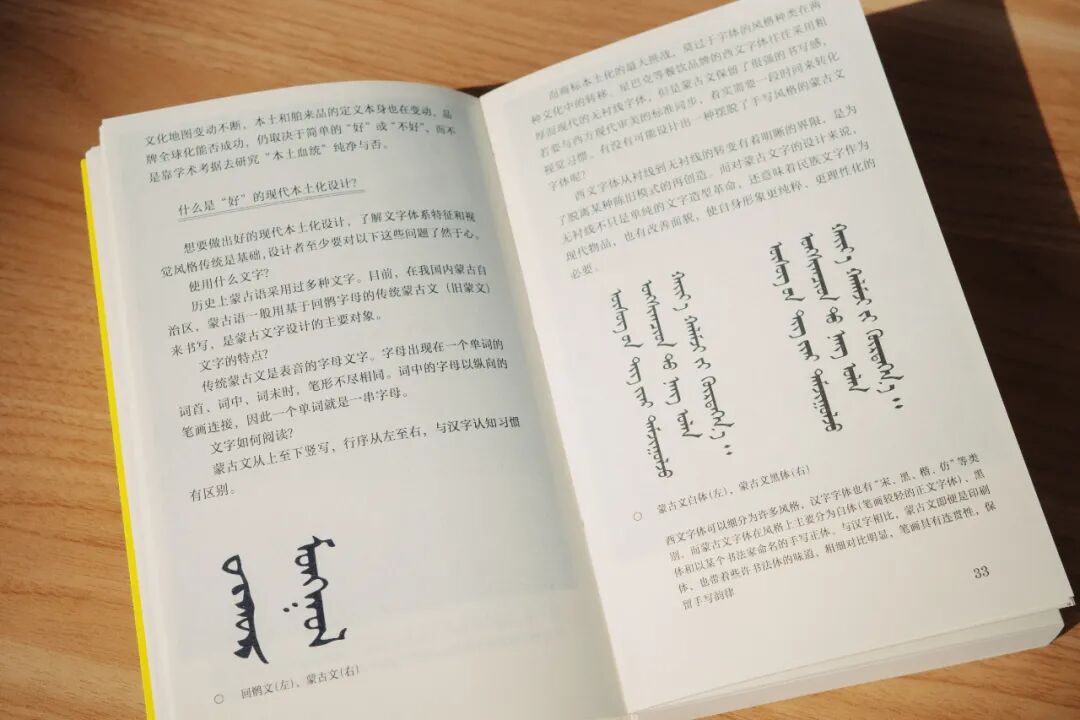 文化地图变动不断，本土和舶来品的定义本身也在变动，品
牌全球化能否成功，仍取决于简单的“好”或“不好”，而不
是靠学术考据去研究“本土血统”纯净与否。
什么是“好”的现代本土化设计？
想要做出好的现代本土化设计，了解文字体系特征和视
觉风格传统是基础，设计者至少要对以下这些问题了然于心。
使用什么文字？
历史上蒙古语采用过多种文字。目前，在我国内蒙古自
治区，蒙古语一般用基于回鹘字母的传统蒙古文（旧蒙文）
来书写，是蒙古文字设计的主要对象。
文字的特点？
传统蒙古文是表音的字母文字。字母出现在一个单词的
词首、词中、词末时，笔形不尽相同。词中的字母以纵向的
笔画连接，因此一个单词就是一串字母。
文字如何阅读？
蒙古文从上至下竖写，行序从左至右，与汉字认知习惯
有区别。
回鹘文（左），蒙古文（右）
而商标本土化的最大挑战，莫过于字体的风格种类在两
种文化中的转移。星巴克等餐饮品牌的西文字体往往采用粗
厚而现代的无衬线字体，但是蒙古文保留了很强的书写感，
若要与西方现代审美的标准同步，着实需要一段时间来转化
视觉习惯。有没有可能设计出一种摆脱了手写风格的蒙古文
字体呢？
西文字体从衬线到无衬线的转变有着明晰的界限，是为
了脱离某种陈旧模式的再创造。而对蒙古文字的设计来说，
无衬线不只是单纯的文字造型革命，还意味着民族文字作为
现代物品，也有改善面貌，使自身形象更纯粹、更理性化的
必要。
蒙古文白体（左），蒙古文黑体（右）
西文字体可以细分为许多风格，汉字字体也有“宋、黑、楷、仿”等类
别，而蒙古文字体在风格上主要分为白体（笔画较轻的正文字体）、黑
体和以某个书法家命名的手写正体。与汉字相比，蒙古文即便是印刷
体，也带着些许书法体的味道，粗细对比明显，笔画具有连贯性，保
留手写韵律
33